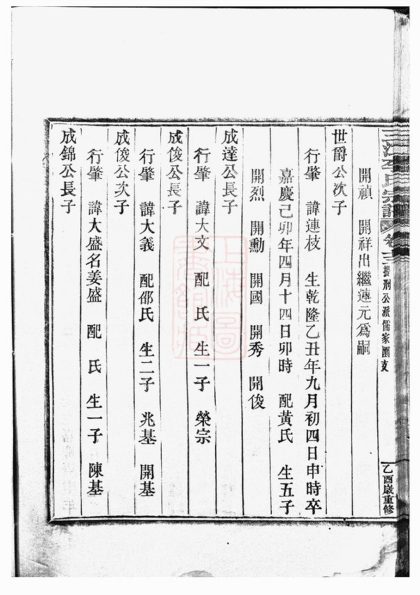 三江李氏宗譜
卷
公派儒家厝支
乙酉歲重修
開禎 開祥出繼蓮元為嗣
世爵公次子
行肇 諱連枝 生乾隆乙丑年九月初四日申時卒
嘉慶己卯年四月十四日卯時 配黃氏 生五子
開烈 開勳 開國 開秀 開俊
成達公長子
行肇 諱大文 配 氏 生一子 榮宗
成俊公長子
行肇 諱大義 配邵氏 生二子 兆基 開基
成俊公次子
行肇 諱大盛名姜盛 配 氏 生一子 陳基
成錦公長子